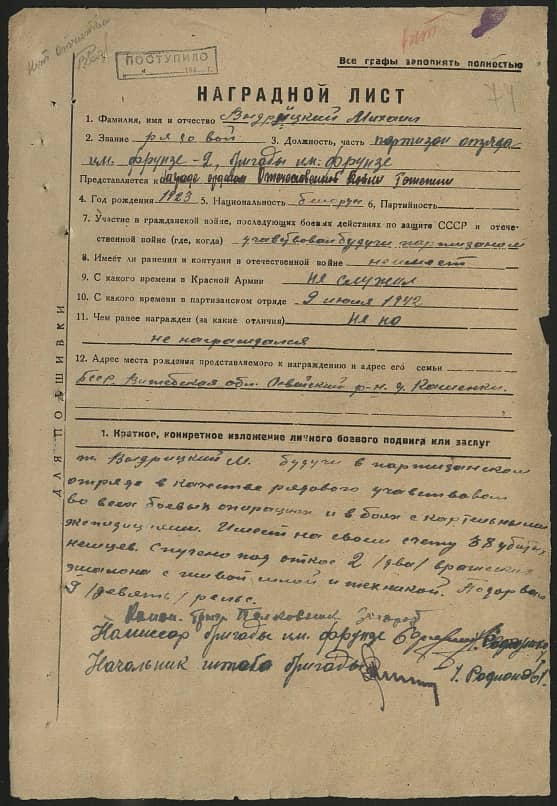 ПОСТУПИЛО
194 г.
Все графы заполнять полностью
74
НАГРАДНОЙ ЛИСТ
1. Фамилия, имя и отчество Выдрицкий Михаил
2. Звание рядовой 3. Должность, часть партизан отряда
им. Фрунзе-2, бригады им. Фрунзе
Представляется к награде орденом Отечественной Войны
4. Год рождения 1923 5. Национальность белорус 6, Партийность
7. Участие в гражданской войне, последующих боевых действиях по защите СССР и отече-
ственной войне (где, когда) участвовал будучи партизаном
8. Имеет ли ранения и контузии в отечественной войне не имеет
9. С какого времени в Красной Армии не служил
10. С какого времени в партизанском отряде 9 июля 1942
11. Чем ранее награжден (за какие отличия)
не награждался
12. Адрес места рождения представляемого к награждению и адрес его семьи
БССР Витебская обл. р-н д. Кашенки.
ДЛЯ ПОДШИВКИ
1. Краткое, конкретное изложение личного боевого подвига или заслуг
т. Выдрицкий М. будучи в партизанском
отряде в качестве рядового участвовал
во всех боевых операциях и в боях с карательными
экспедициями. Имеет на своем счету 38 убитых
немцев. Спущено под откос 2 /два/ вражеских
эшалона с живой силой и техникой. Подорвал
9 /девять/ рельс.
Полковник
Комиссар бригады им. Фрунзе
Начальник штаба бригады Родионов